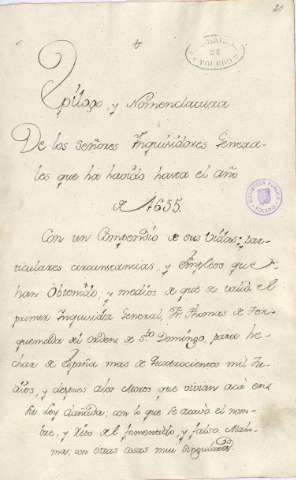 20
Epilogo, y Nomenclatura
De los Señores Inquisidores Genera-
les que ha havido hasta el año
de 1655.
Con un Compendio de sus vidas, par-
ticulares circunstancias, y Empleos que
han Obtenido, y medios de que se valió el
primer Inquisidor General, Fr. Thomas de Tor-
quemada del Orden de Sto. Domingo, para he-
char de España mas de Quatrocientos mil Ju-
dios, y despues a los Moros que vivian acá en
su Ley dañada; con lo que se acavó el nom-
bre, y Rito de el fomentado, y falso Maho-
ma, con otras cosas mui singulares.